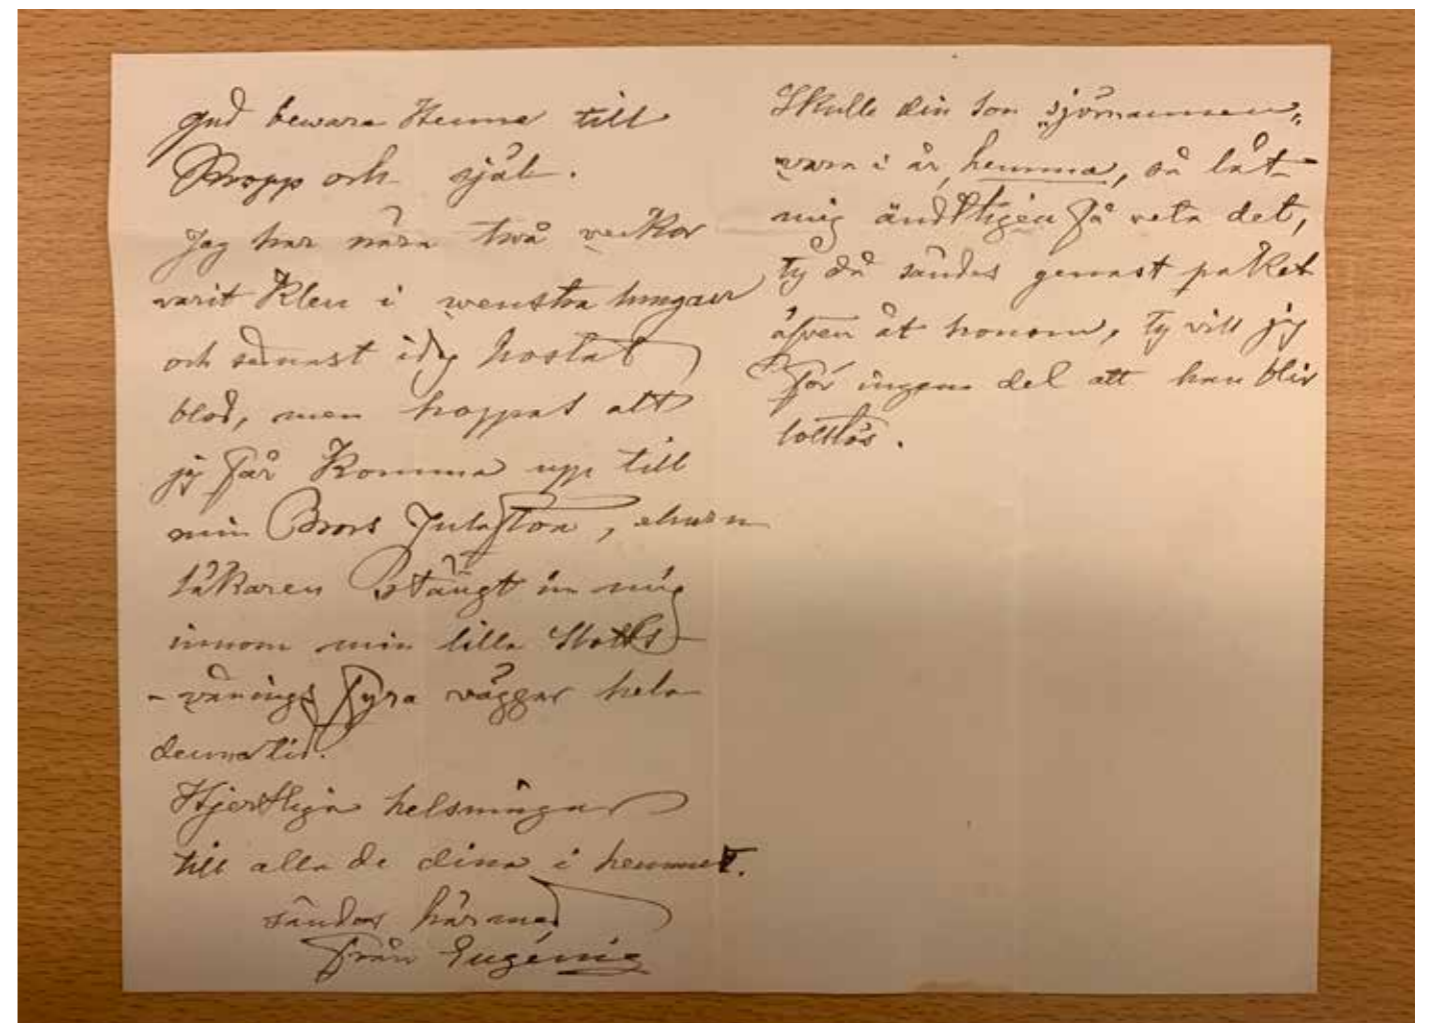 gud bewara Henne till
Kropp och själ.
Jag har nära två veckor
varit klen i wenstra lungan
och senast idag hostat
blod, men hoppas att
jag får komma upp till
min Brors Julafton, ehuru
läkaren stängt in mig
innom min lilla Slotts
-vånings fyra väggar hela
denna tid.
Hjertliga helsningar
till alla de dina i hemmet.
sändas härmed
från Eugénie
Skulle din son "sjömannen"
vara i år hemma, så låt
mig ändtligen få veta det,
ty då sändes genast paket
äfven åt honom, ty vill jag
för ingen del att han blir
lottlös.